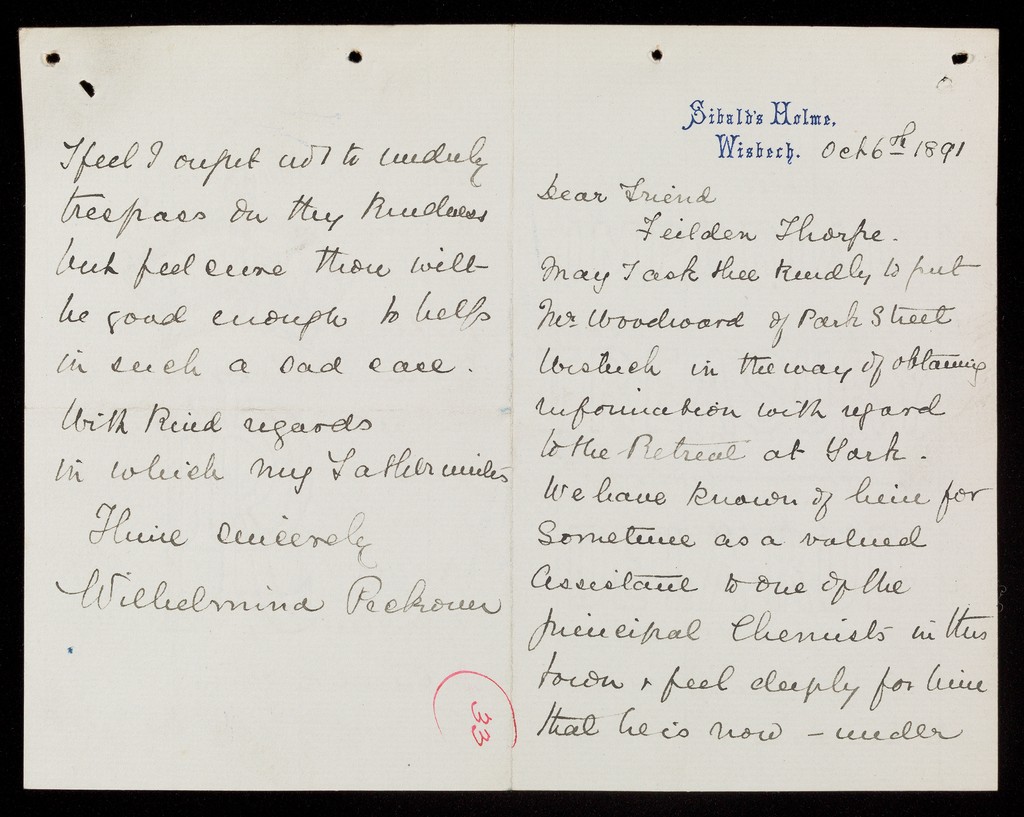 Sibald's Holme,
Wisbech. Oct 6th 1891
Dear Friend
Feilden Thorpe.
May I ask thee kindly to put
Mr. Woodward of Park Street
Wisbech in the way of obtaining
information with regard
to the Retreat at York.
We have known of him for
Sometime as a valued
Assistant to one of the
principal Chemists in this
town & feel deeply for him
that he is now - under
I feel I ought not to unduly
trespass on thy kindness
but feel sure thou wilt
be good enough to help
in such a sad case.
With kind regards
in which my Father unites
Thine sincerely
Wilhelmina Peckover
33